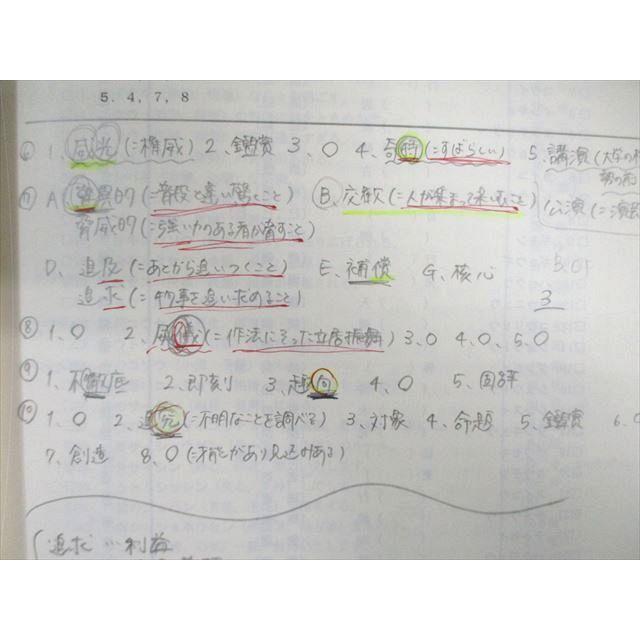 5. 4, 7, 8
⑥ 1、威光(=権威) 2、鑑賞 3、○ 4、奇特(=すばらしい) 5、講演(大学の
⑦ A 驚異的(=普段と違い驚くこと) B、交歓(=人が集まって楽しむこと) 公演(=演
脅威的(=強い力のある者が脅すこと)
D、追及(=あとから追いつくこと) E、補償 G、核心
追求(=物事を追い求めること) 3
⑧ 1、○ 2、威儀(=作法にそった立居振舞) 3、○ 4、○ 5、○
⑨ 1、不徹底 2、即刻 3、趣向 4、○ 5、固辞
⑩ 1、○ 2、追究(=不明なことを調べる) 3、対象 4、命題 5、鑑賞 6、○
7、創造 8、○(=才能があり見込みがある)
追求…利益